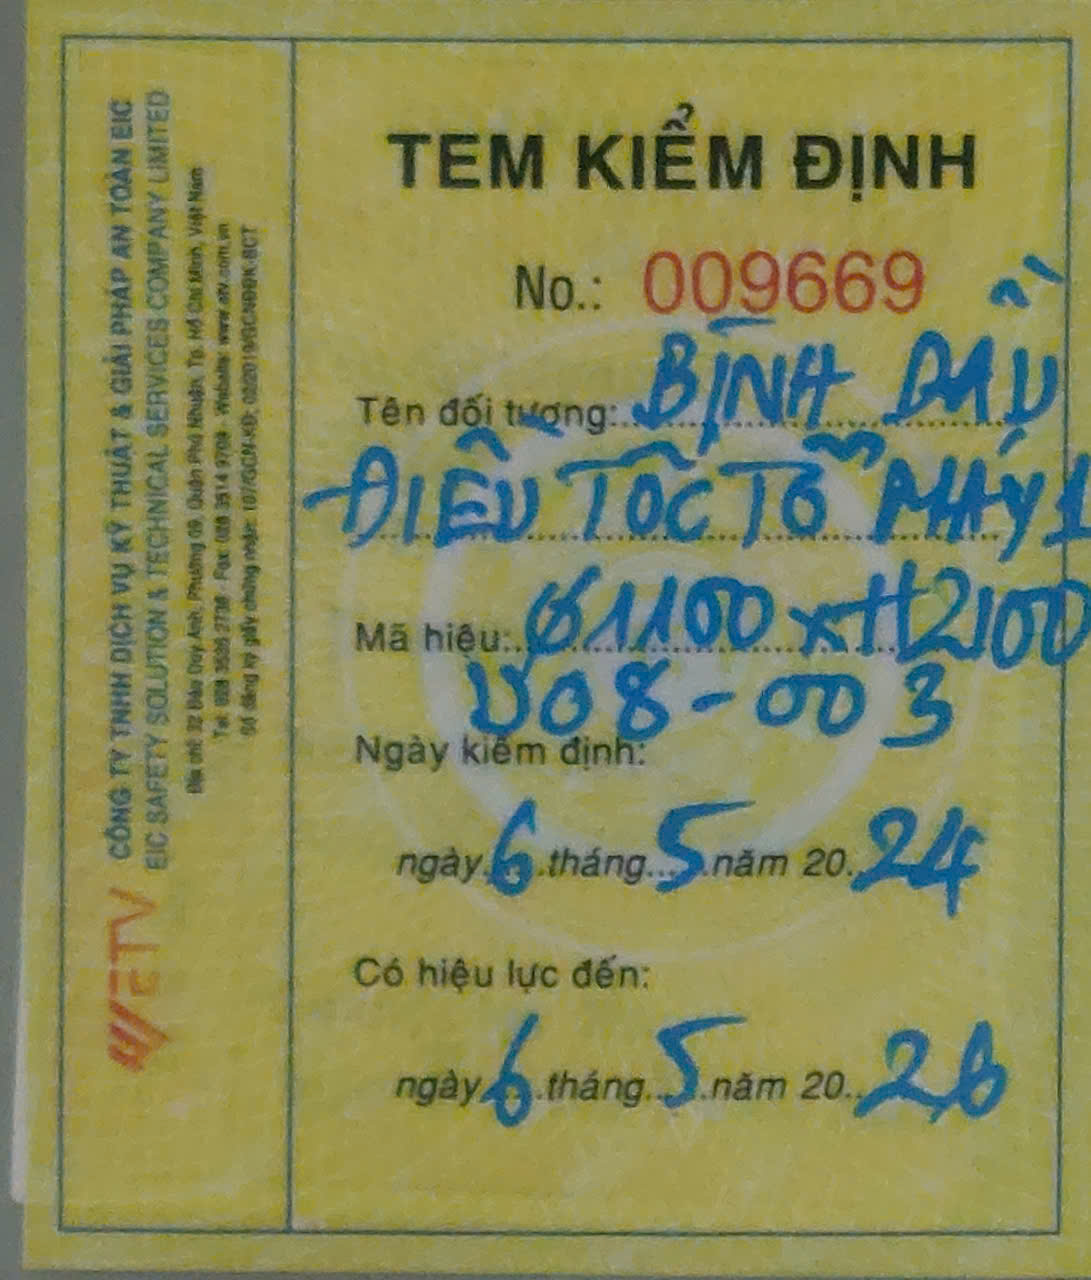 TEM KIỂM ĐỊNH
No.: 009669
Tên đối tượng: BÌNH DẦU
ĐIỀU TỐC TỔ MÁY 1
Mã hiệu: Ø1100 x H2100
V08-003
Ngày kiểm định:
ngày 6 tháng 5 năm 20 24
Có hiệu lực đến:
ngày 6 tháng 5 năm 20 26
CÔNG TY TNHH DỊCH VỤ KỸ THUẬT & GIẢI PHÁP AN TOÀN EIC
EIC SAFETY SOLUTION & TECHNICAL SERVICES COMPANY LIMITED
Địa chỉ: 32 Đào Duy Anh, Phường 09, Quận Phú Nhuận, Tp. Hồ Chí Minh, Việt Nam
Tel: 028 3526 - Fax: 028 3514 9709 - Website:
Số đăng ký giấy chứng nhận:
ETV